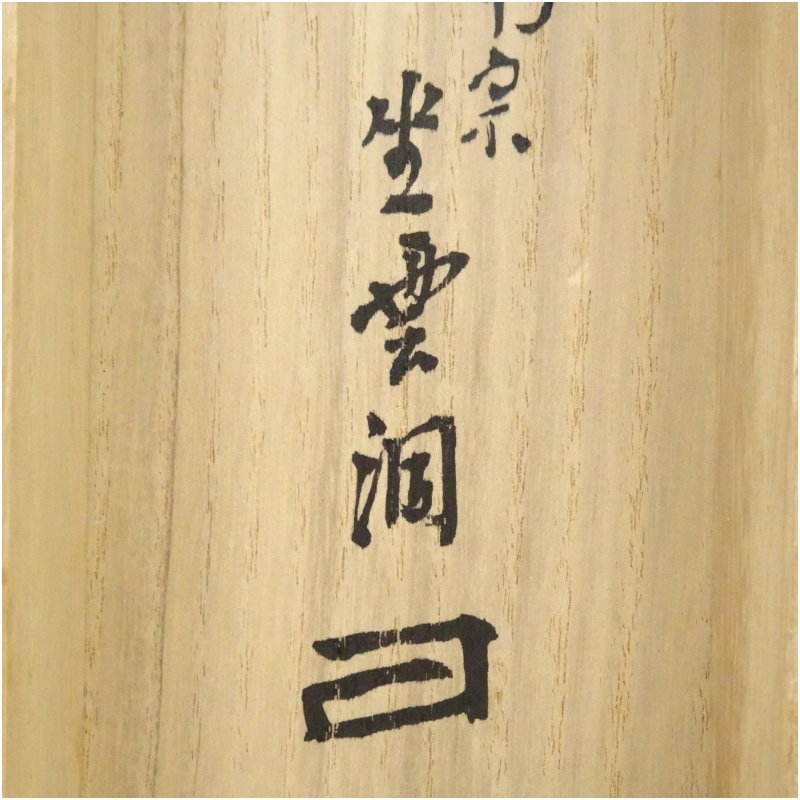 宗
坐雲洞